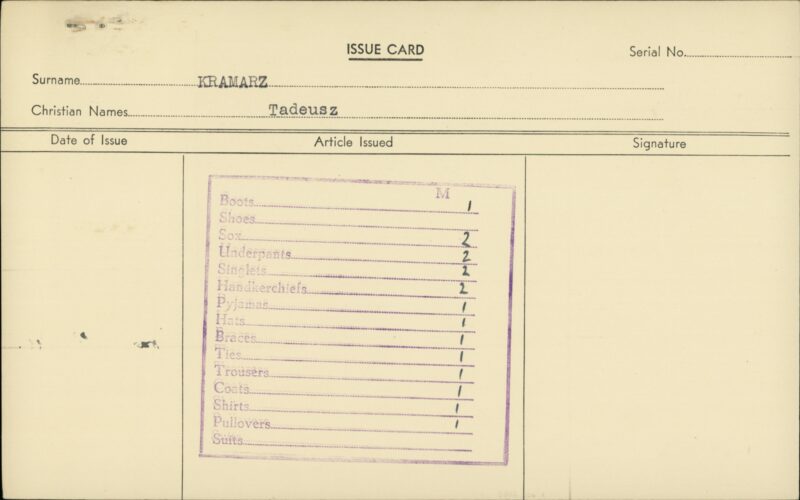 ISSUE CARD
Serial No.
Surname KRAMARZ
Christian Names Tadeusz
Date of Issue Article Issued Signature
M
Boots 1
Shoes
Sox 2
Underpants 2
Singlets 2
Handkerchiefs 2
Pyjamas 1
Hats 1
Braces 1
Ties 1
Trousers 1
Coats 1
Shirts 1
Pullovers 1
Suits